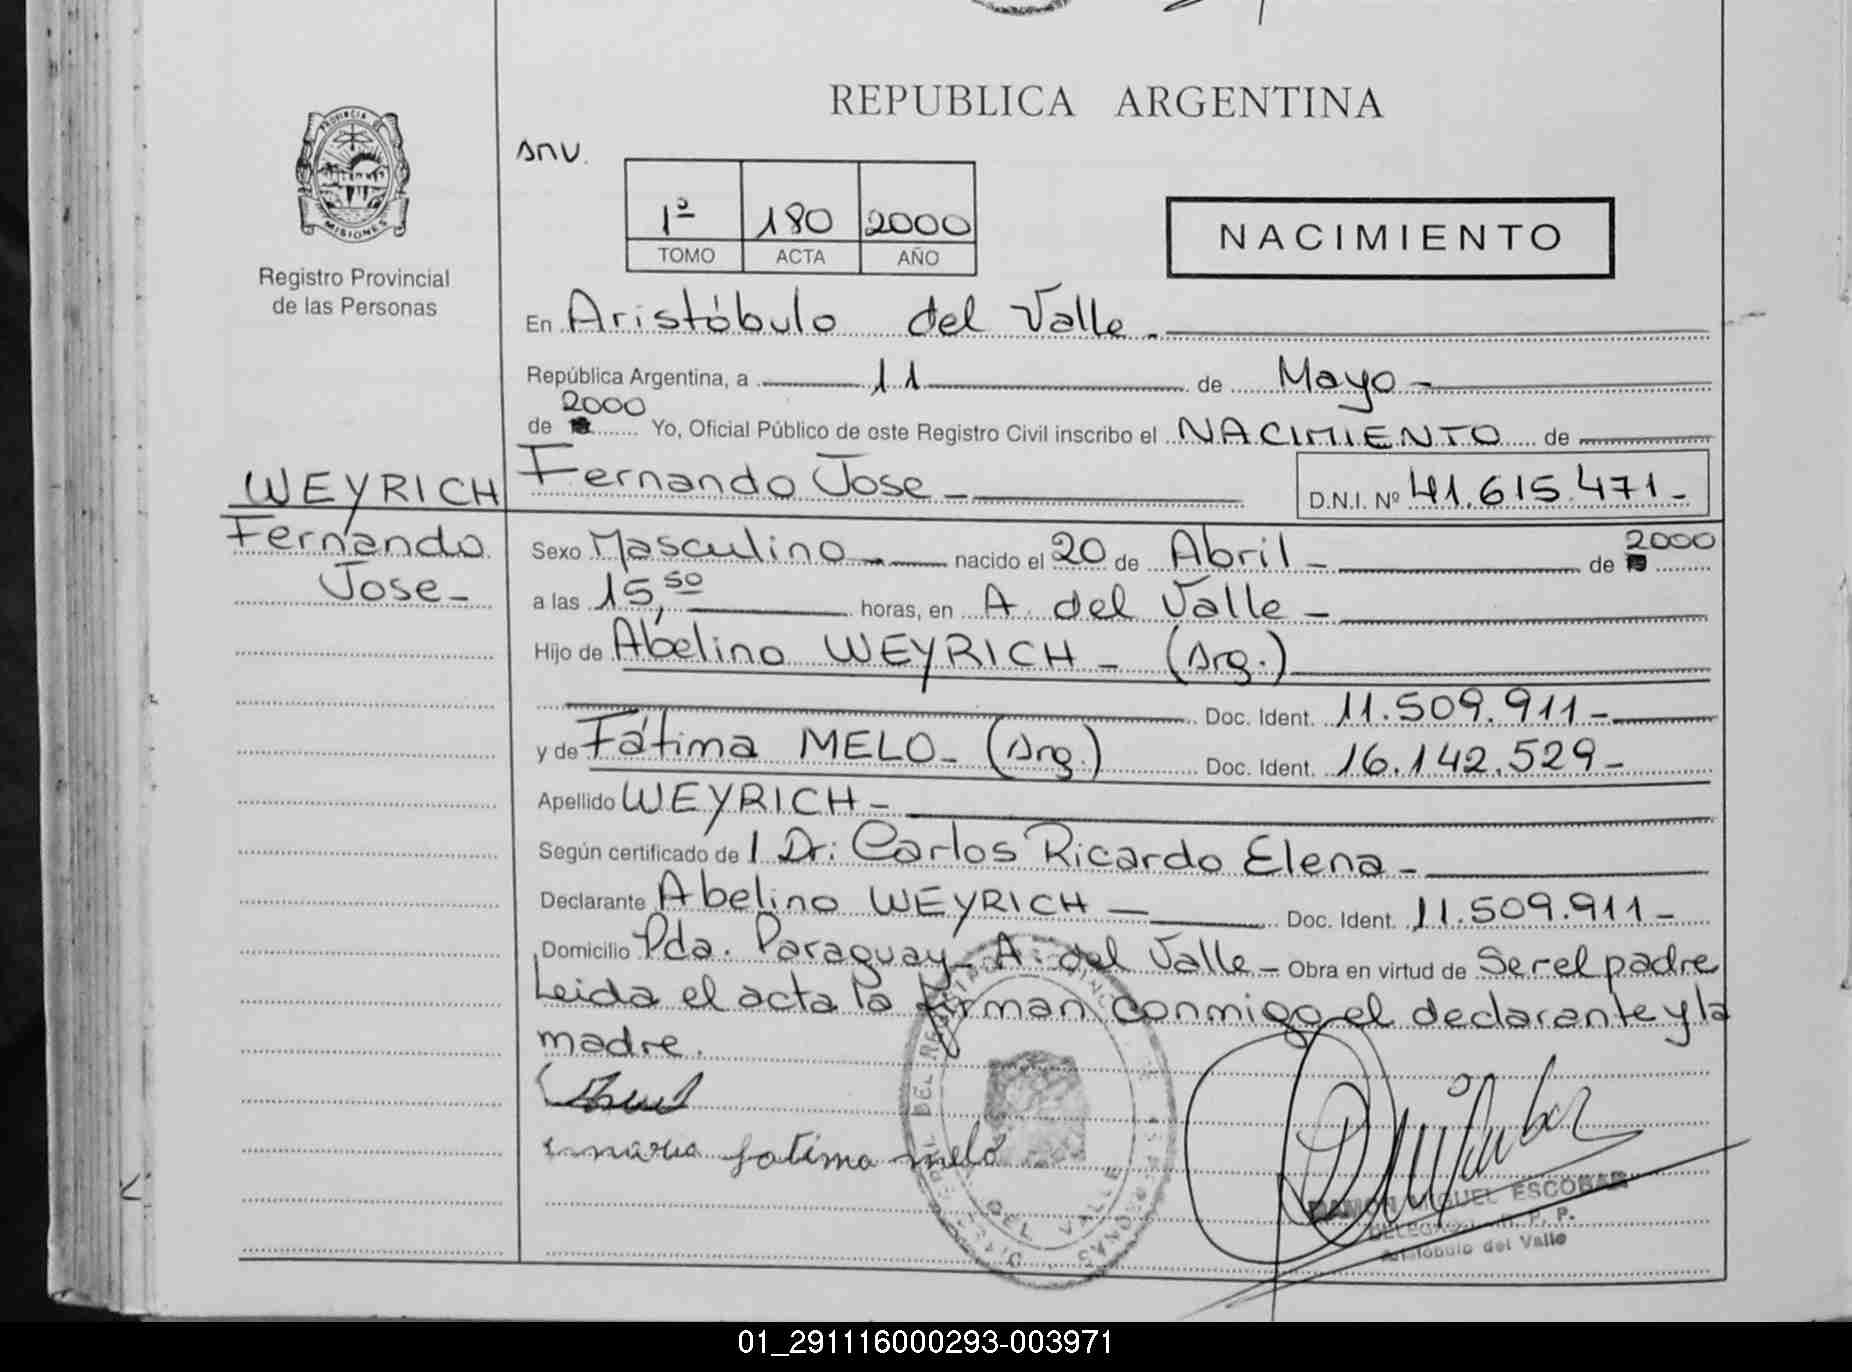 REPUBLICA ARGENTINA
PROVINCIA DE
MISIONES
Registro Provincial
de las Personas
1º 180 2000
TOMO ACTA AÑO
NACIMIENTO
En Aristóbulo del Valle -
República Argentina, a 11 de Mayo -
2000
de Yo, Oficial Público de este Registro Civil inscribo el NACIMIENTO de
WEYRICH
Fernando Jose -
Fernando Jose - D.N.I. Nº 41.615.471 -
Sexo Masculino - nacido el 20 de Abril - de 2000
a las 15,50 horas, en A. del Valle -
Hijo de Abelino WEYRICH - (Arg.)
Doc. Ident. 11.509.911 -
y de Fátima MELO - (Arg.) Doc. Ident. 16.142.529 -
Apellido WEYRICH -
Según certificado de l Dr. Carlos Ricardo Elena -
Declarante Abelino WEYRICH - Doc. Ident. 11.509.911 -
Domicilio Pda. Paraguay - A. del Valle - Obra en virtud de Ser el padre
Leida el acta la firman conmigo el declarante y la
madre.
maria fatima melo
DEL VALLE
RAMON MIGUEL ESCOBAR
DELEGADO R. P. P.
Aristobulo del Valle
01_291116000293-003971